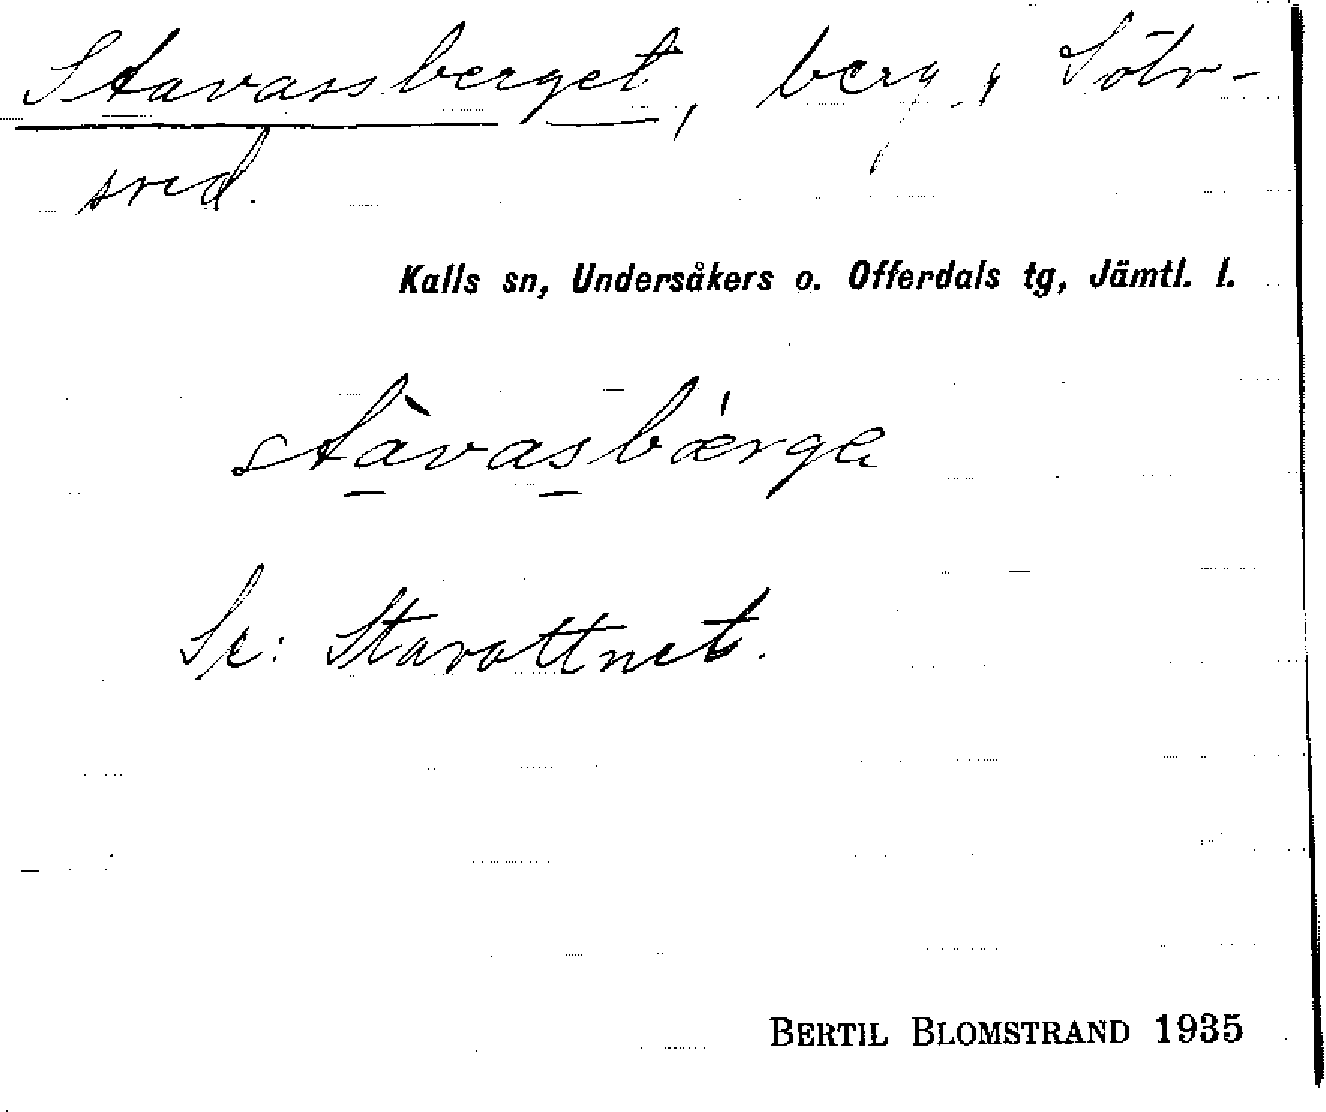 Stavassberget, berg i Sölv-
sved.
Kalls sn, Undersåkers o. Offerdals tg, Jämtl. l.
stàvasbárga
Se: Stavattnet.
BERTIL BLOMSTRAND 1935